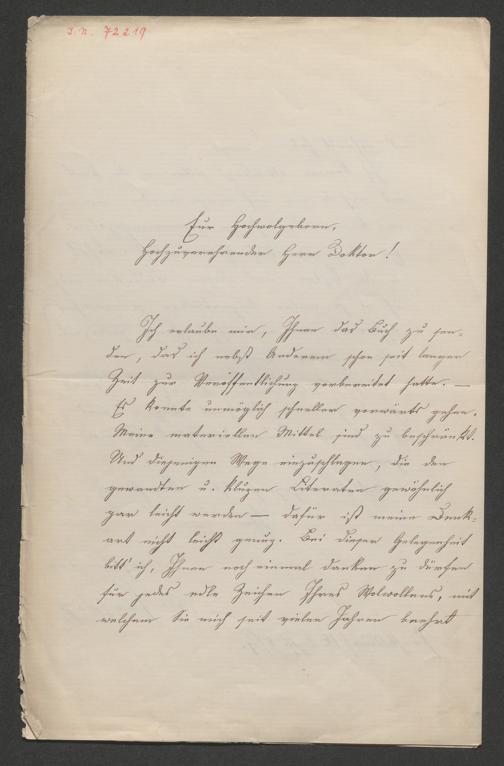 I.N. 72219
Euer Hochwolgeboren,
Hochzuverehrender Herr Doktor!
Ich erlaube mir, Ihnen das Buch zu sen-
den, das ich nebst Anderem schon seit langer
Zeit zur Veröffentlichung vorbereitet hatte. —
Es konnte unmöglich schneller vorwärts gehen.
Meine materiellen Mittel sind zu beschränkt.
Und diejenigen Wege einzuschlagen, die den
gewandten u. klugen Literaten gewöhnlich
gar leicht werden — dafür ist meine Denk-
art nicht leicht genug. Bei dieser Gelegenheit
bitt' ich, Ihnen noch einmal danken zu dürfen
für jedes edle Zeichen Ihres Wolwollens, mit
welchem Sie mich seit vielen Jahren beehrt